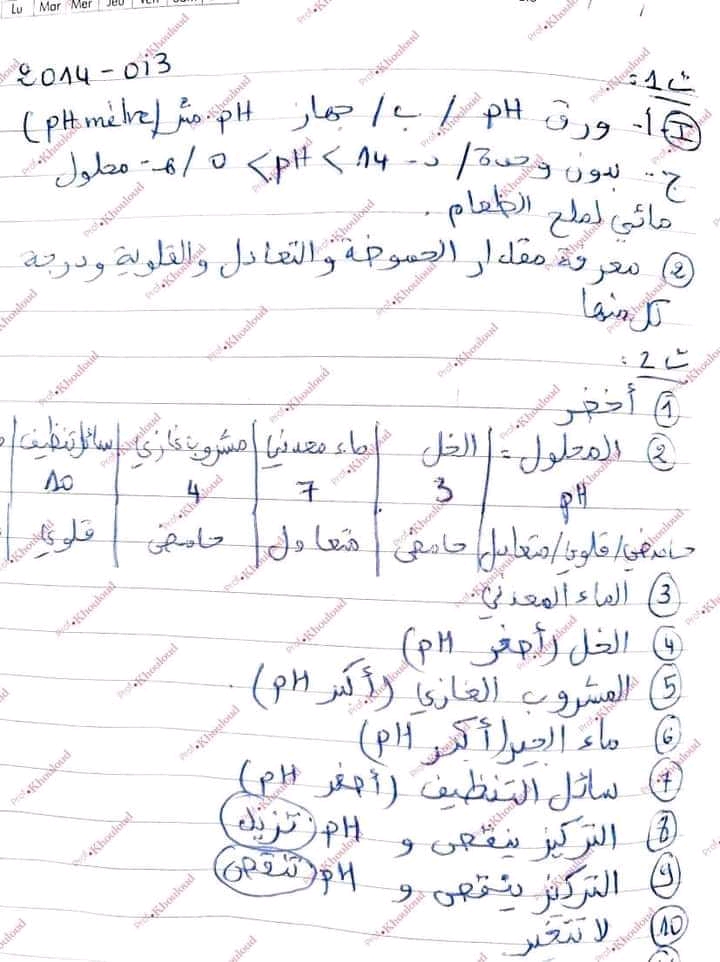 Lu Mar Mer Jeu Ven
2014-013
ت 1 :
I 1- أ- ورق pH / ب/ جهاز pH متر (pH mètre)
ج- بدون وحدة / د- 14 > pH > 0 / هـ- محلول
مائي لملح الطعام .
2 معرفة مقدار الحموضة والتعادل والقلوية ودرجة
كل منها
ت 2 :
1 أخضر
2 المحلول = | الخل | ماء معدني | مشروب غازي | سائل تنظيف
pH | 3 | 7 | 4 | 10
حامضي/قلوي/متعادل | حامضي | متعادل | حامضي | قلوي
3 الماء المعدني
4 الخل (أصغر pH)
5 المشروب الغازي (أكبر pH) .
6 ماء الجير (أكبر pH)
7 سائل التنظيف (أصغر pH)
8 التركيز ينقص و pH تزيد
9 التركيز ينقص و pH تنقص
10 لا تتغير
Prof•Khouloud